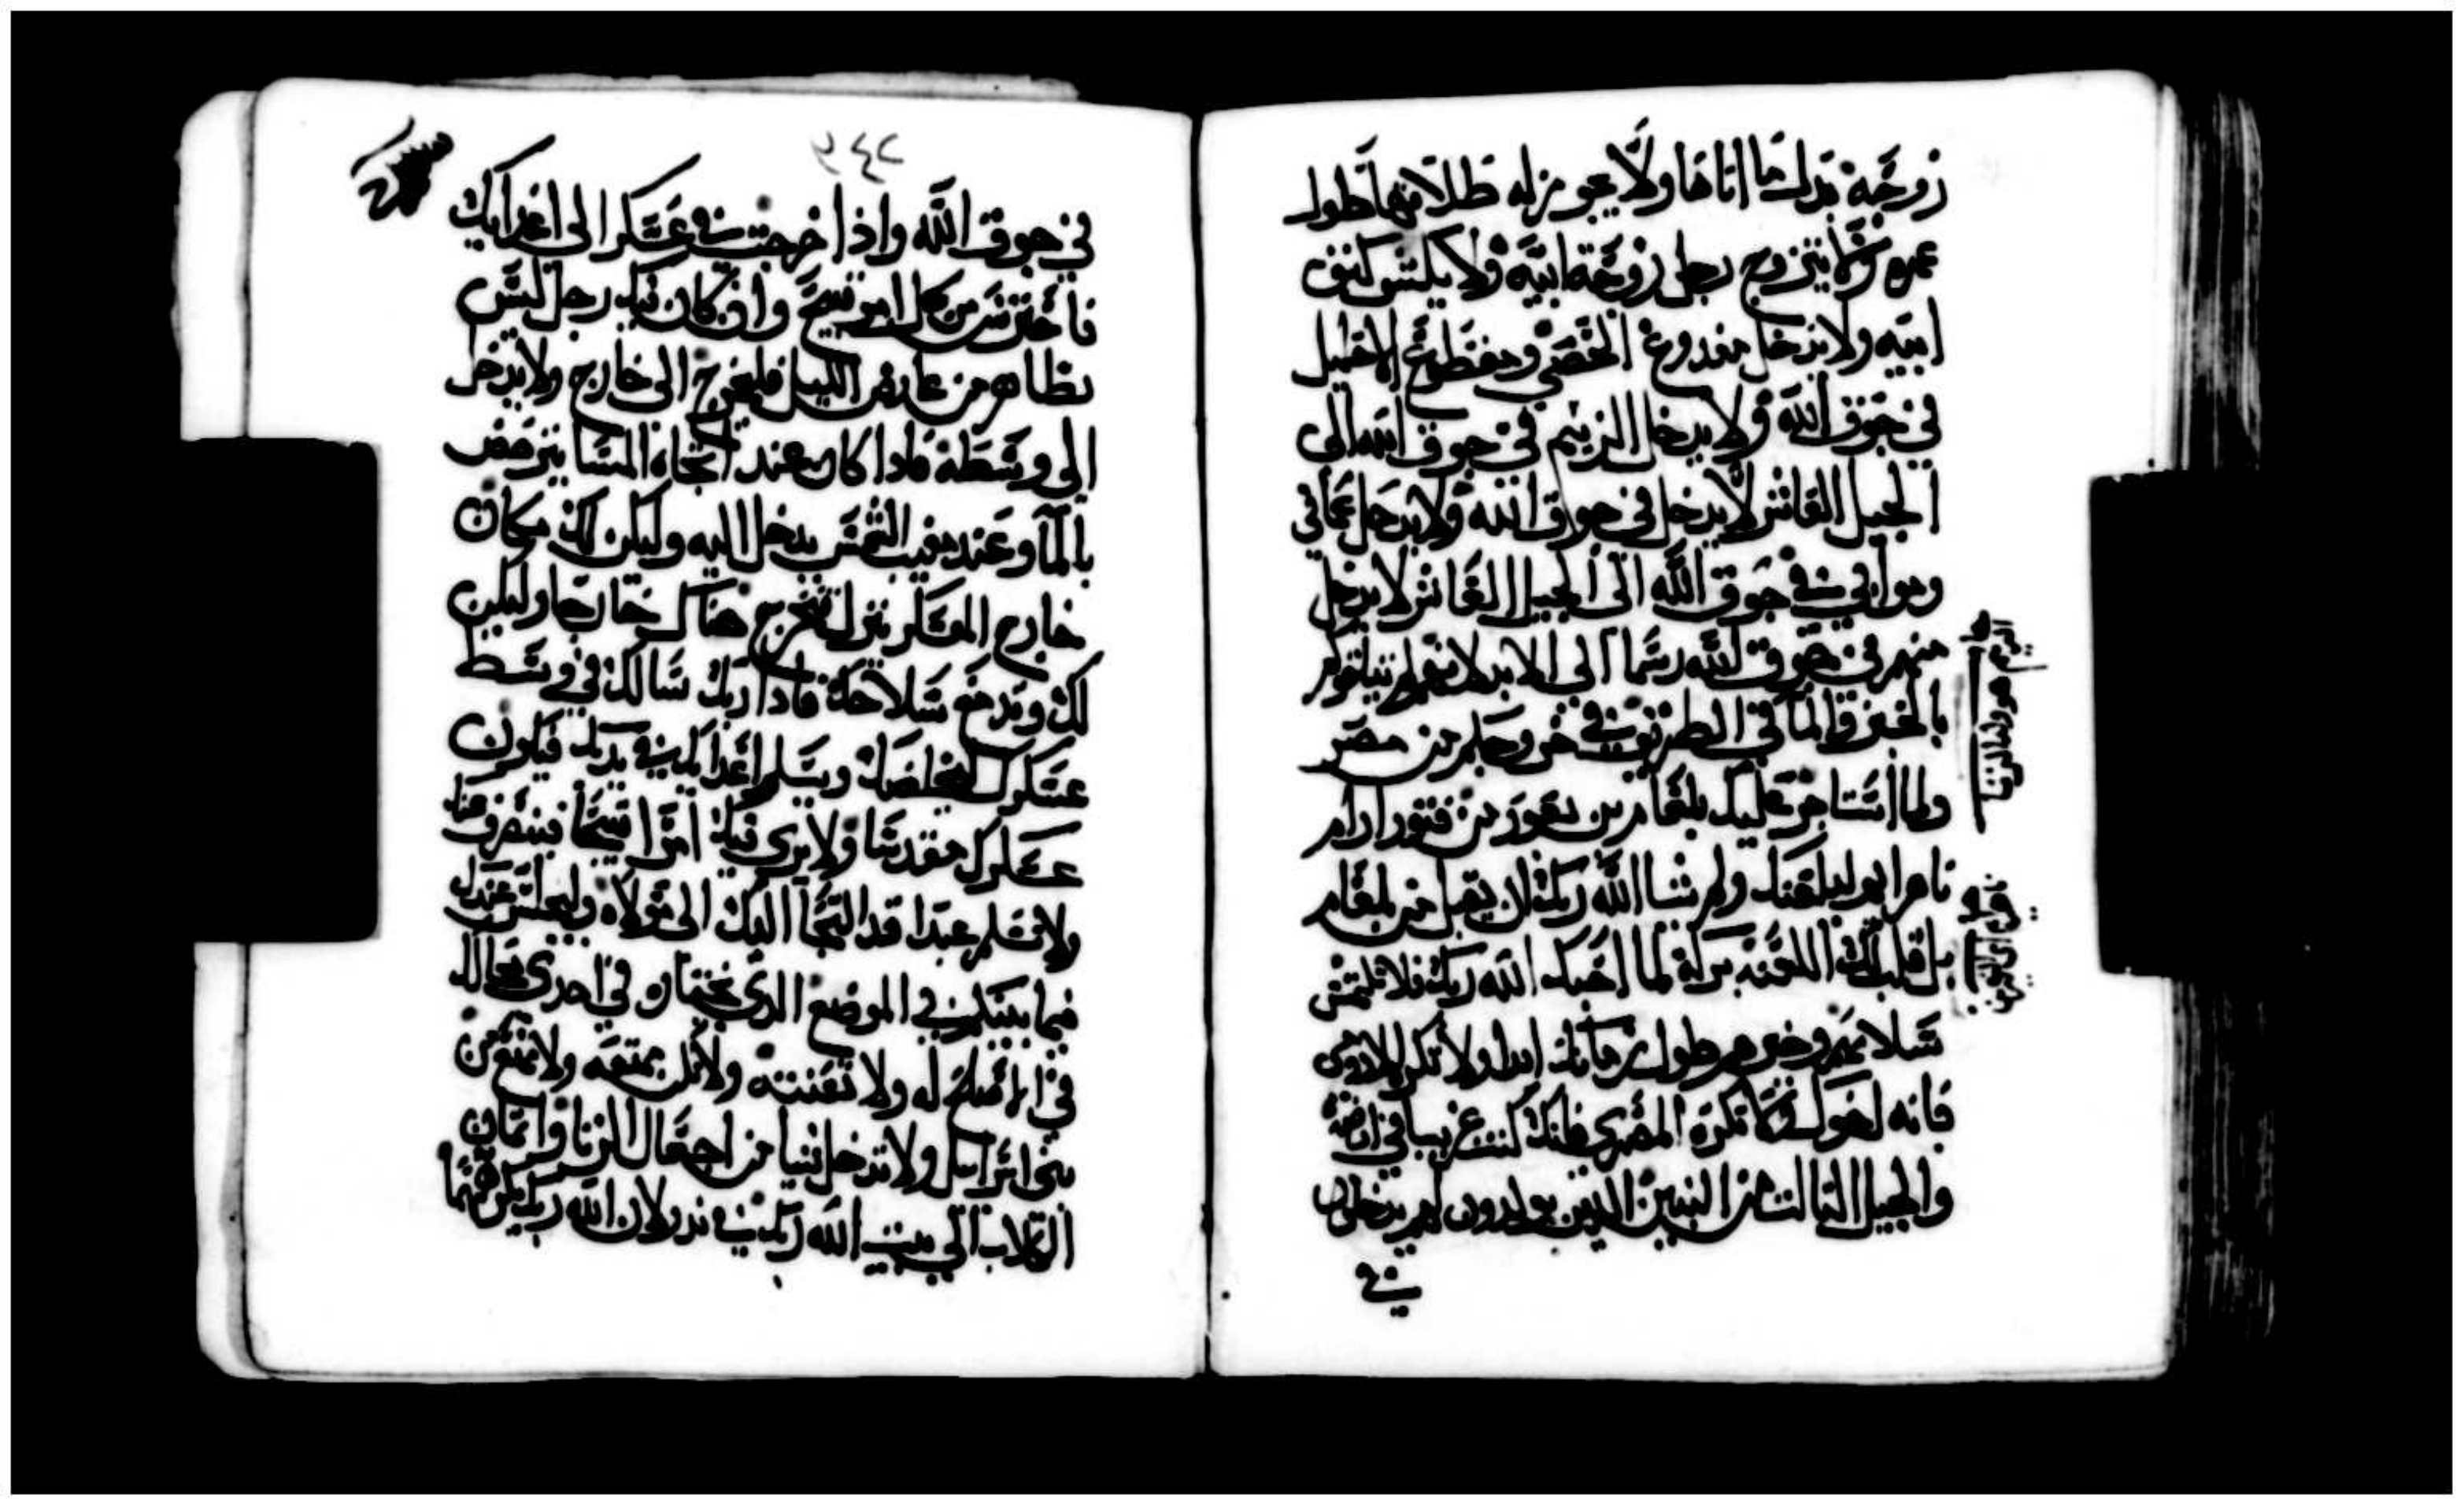 زوجة بدل ما اناها ولا يجوز له طلاقها طول
عمره ولا يتزوج رجل زوجة ابيه ولا يكشف كنف
ابيه ولا يدخل مفدوغ الخصي ومقطوع الاحليل
في جوق الله ولا يدخل الزنيم في جوق الله الى
الجيل العاشر لا يدخل في جوق الله ولا يدخل عماني
وموابي في جوق الله الى الجيل العاشر لا يدخل
منهم في جوق الله رسما الى الابد لانهم لم يتلقوكم
بالخبز والما في الطريق في خروجكم من مصر
ولما استاجر عليك بلعام بن بعور من فتور ارام
نامرايم ليلعنك ولم يشا الله ربك ان يقبل من بلعام
بل قلب لك اللعنه بركة لما احبك الله ربك فلا تلتمس
سلامهم وخيرهم طول زمانك ابدا ولا تكره الادومى
فانه اخوك ولا تكره المصري فانك كنت غريبا في ارضه
والجيل التالت من البنين الدين يولدون لهم يدخلون
في
الزنيم هو ولد الزنا
٢٤٢
في جوق الله واذا خرجت في عسكر الى اعدايك
فاحترس من كل امر قبيح وان كان فيك رجل ليس
بطاهر من عارض الليل فليخرج الى خارج ولا يدخل
الى وسطه فادا كان عند اتجاه المسا يترحض
بالما وعند مغيب الشمس يدخل اليه وليكن لك مكان
خارج العسكر تنزل تخرج هناك خارجا وليكن
لك وتد مع سلاحك فادا ربك سالك في وسط
عسكرك ليخلصك ويسلم اعدايك في يدك فيكون
عسكرك مقدسا ولا يرى فيك امرا قبيحا فينصرف عنك
ولا تسلم عبدا قد التجأ اليك الى مولاه وليجلس عندك
فيما بينكم في الموضع الدي يختار في احدى محالك
في الاصلح له ولا تعنته ولا تكن ممتعه ولا ممتع من
بني اسراييل ولا تدخل شيا من اجعال الزنا واتمان
الكلاب الى بيت الله ربك في ندر لان الله ربك يكرههما